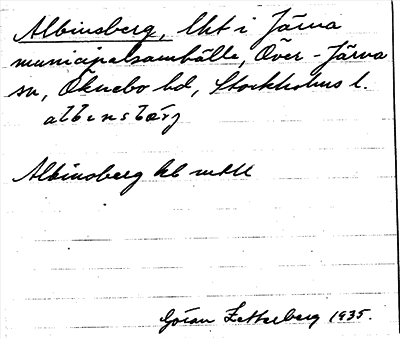 Albinsberg, lht i Järna
municipalsamhälle, Över-Järna
sn, Öknebo hd, Stockholms l.
albensbärj
Albinsberg hb
Göran Zetterberg 1935.